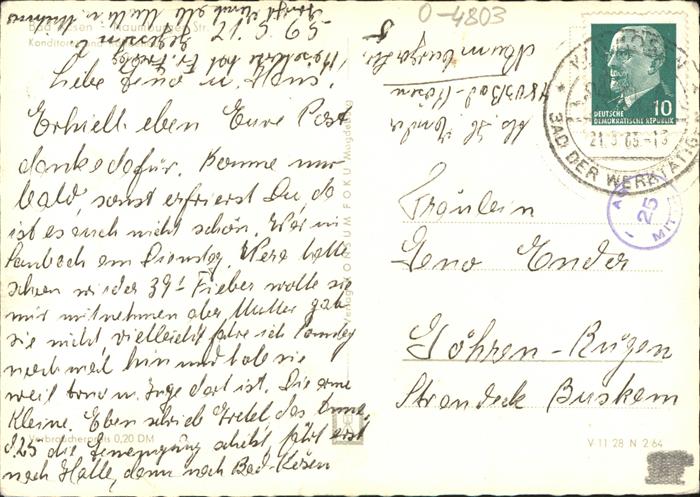 0-4803
Bad Kösen - Naumburger Str.
Konditorei
21.3.65
Liebe Leno u. Hans!
Erhielt eben Eure Post
danke dafür. Komme nur
bald, sonst erfrierst Du, da
ist es auch nicht schön. War in
am Dienstag. Vera hatte
schon wieder 39¹ Fieber wollte sie
mir mitnehmen aber Mutter gab
sie nicht vielleicht fahre ich Sonntag
noch mal hin und hole sie
weil u. Inge dort ist. Die arme
Kleine. Eben schrieb Gretel das
die fährt erst
nach Halle, dann nach Bad-Kösen
Verbraucherpreis 0,20 DM
Verlag KONSUM FOKU Magdeburg
Abs. H. Ender
4803 Bad-Kösen
Naumburger Str.
5
DEUTSCHE
DEMOKRATISCHE REPUBLIK
10
BAD DER WERKTÄTIGEN
25
MIT
Fräulein
Leno Ender
Göhren-Rügen
Strandeck Buskam
V 11 28 N 2 64